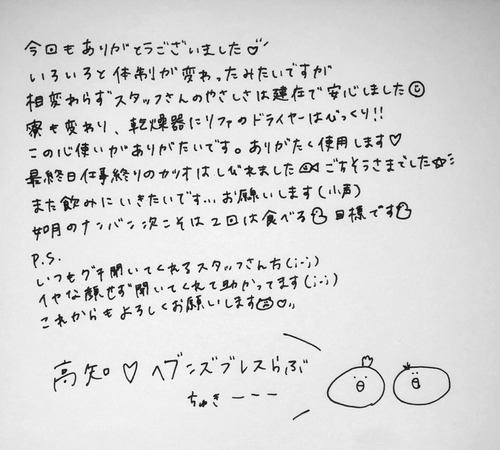 今回もありがとうございました♡
いろいろと体制が変わったみたいですが
相変わらずスタッフさんのやさしさは健在で安心しました☺
寮も変わり、乾燥器にリファのドライヤーはびっくり!!
この心使いがありがたいです。ありがたく使用します♡
最終日仕事終りのカツオはしびれました🐟ごちそうさまでした☆彡
また飲みにいきたいです... お願いします(小声)
如月のナンバン次こそは2回は食べる 目標です
P.S.
いつもグチ聞いてくれるスタッフさん方(;-;)
イヤな顔せず聞いてくれて助かってます(;-;)
これからもよろしくお願いします♡
高知♡ヘブンズブレスらぶ
ちゅきーーー